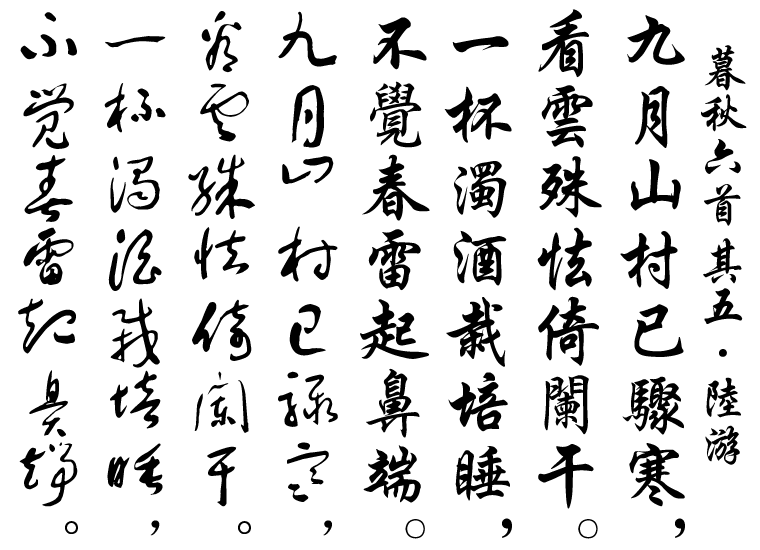 暮秋六首其五·陸游
九月山村已驟寒，
看雲殊怯倚闌干。
一杯濁酒栽培睡，
不覺春雷起鼻端。
九月山村已驟寒，
看雲殊怯倚闌干。
一杯濁酒栽培睡，
不覺春雷起鼻端。